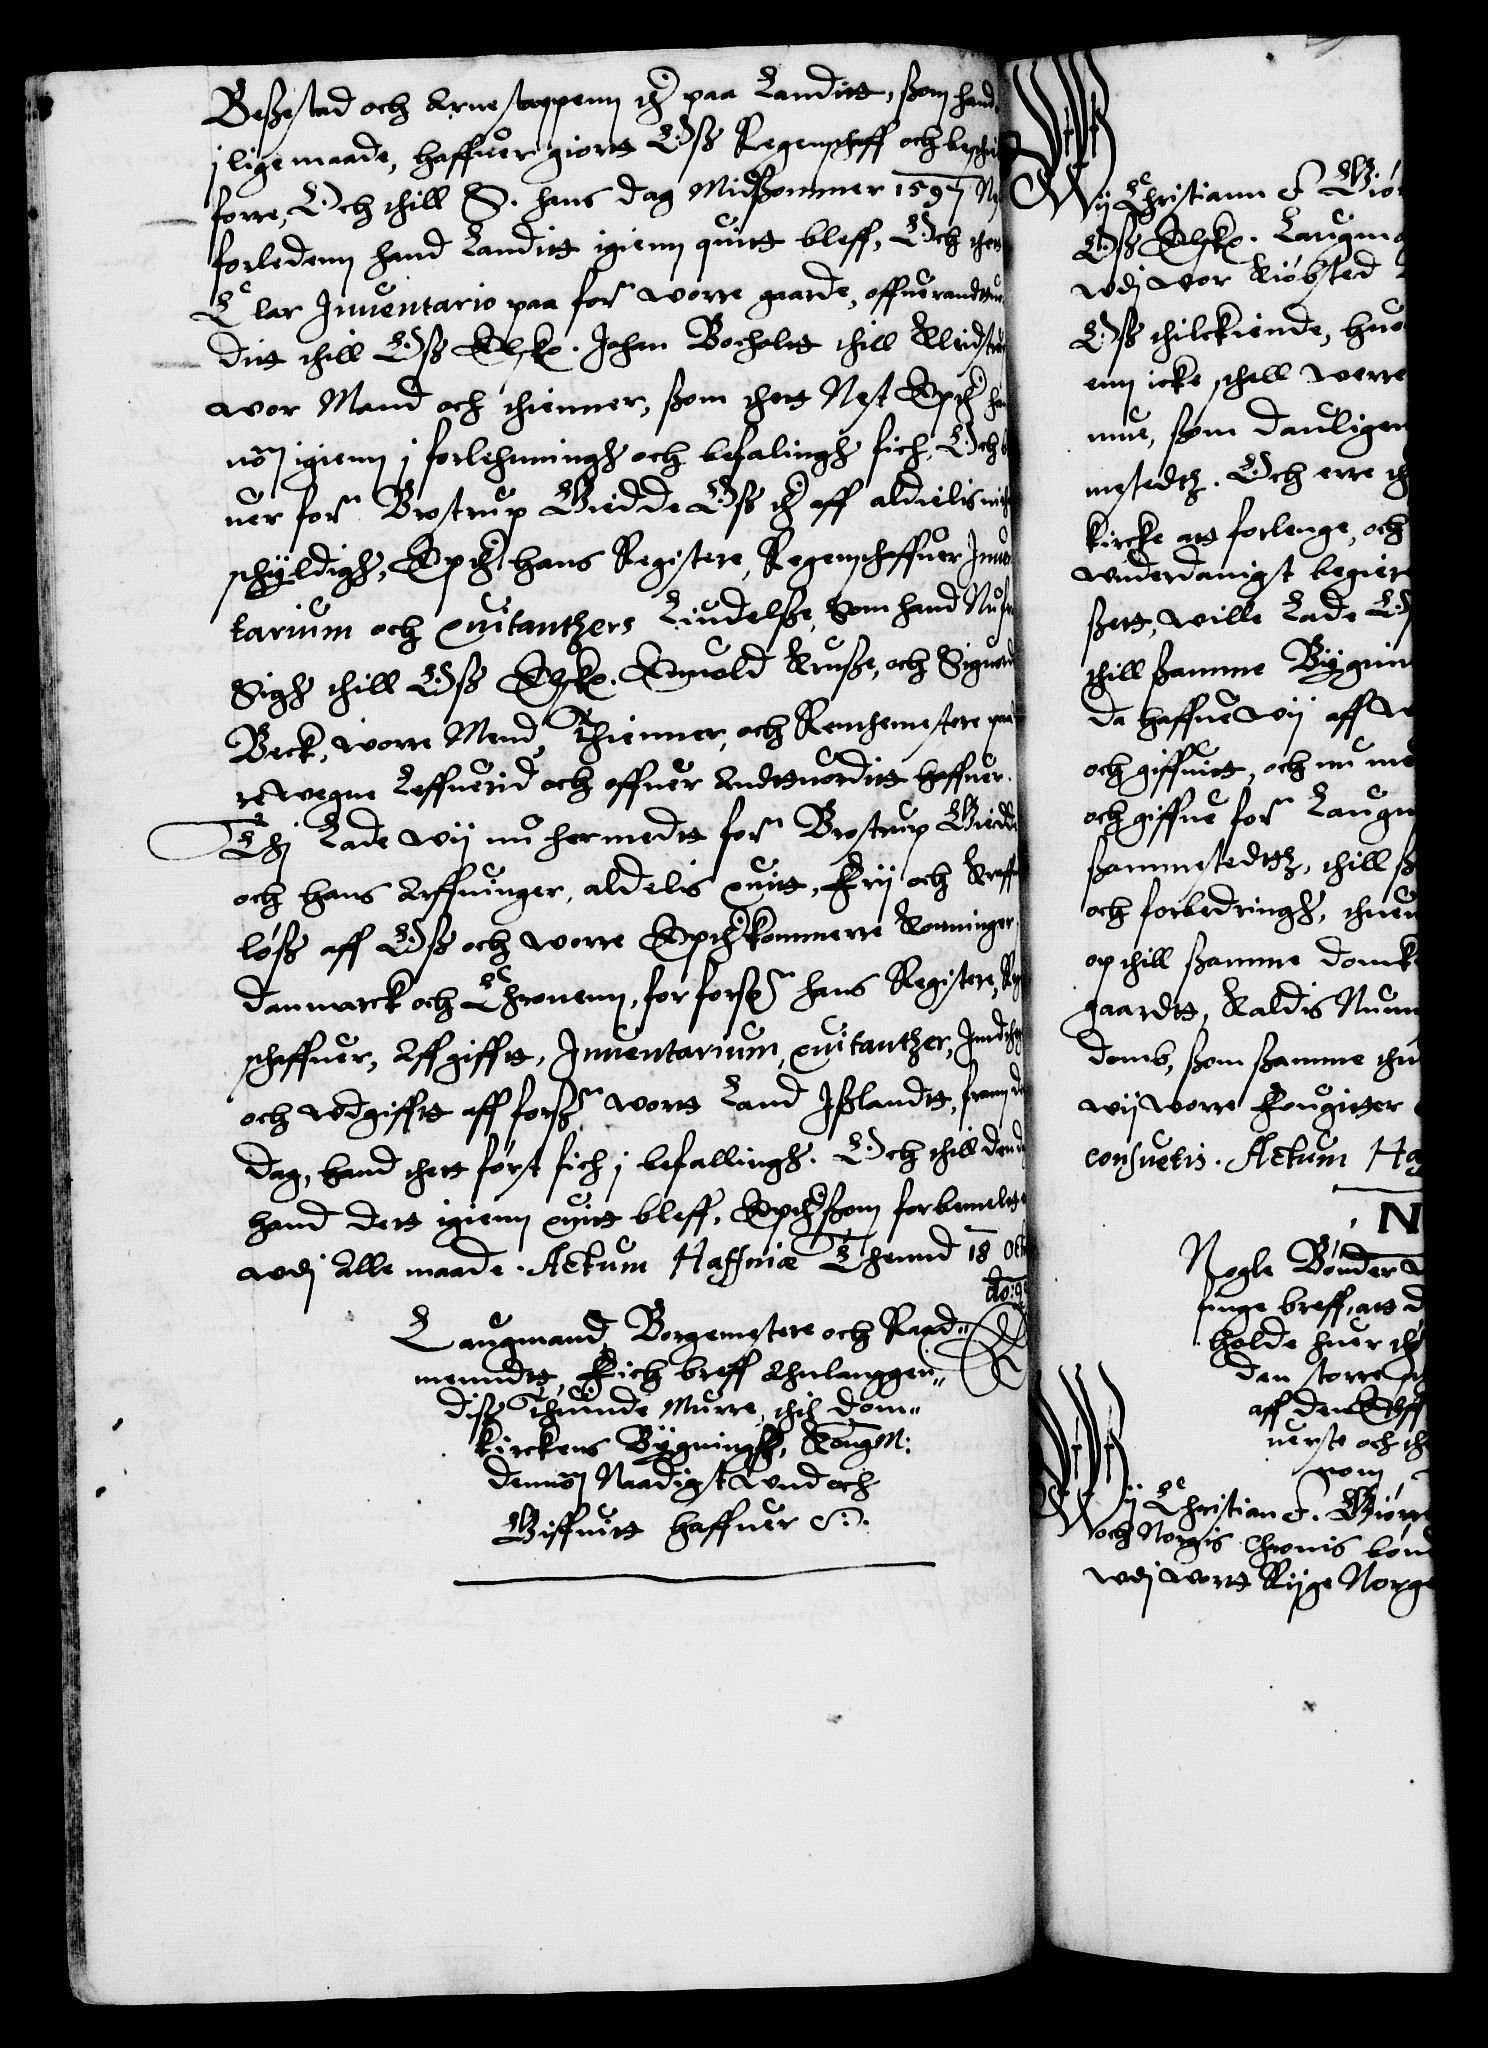 Beßestad och Arnestappenn etc. paa Landitt, ßom hand
j lige maade, haffuer giortt Oß Regenschaff och
forre, Och thill S. Hans dag Midßommer 1597
forledenn hand Landitt igienn quitt bleff, Och
Lar Inuentario paa forne worre gaarde, offuerandtuor
ditt thill Oß Elske. Johan Bocholtt thill
wor Mand och thienner, ßom thett Nest Epther
nom igienn j forlehningh och befalingh fich, Och
uer forne Brostrup Giedde Oß etc. aff aldielis
schyldigh, Epther hans Registere, Regenschaffuer Inuen
tarium och quitantzers Liudelße, Som hand
Sigh thill Oß Elske. Enuold Kruße, och Siguord
Beck, worre Mend, Thienner, och Rentemestere paa
re wegne Leffuerid och offuer Andttuorditt haffuer.
Thj Lade wij nu hermedtt forne Brostrup Giedde
och hans Arffuinger, aldelis quitt, Frij och Kraffue
løß aff Oß och worre Epterkommerre Konninger
Danmarck och Chronenn, for forsne hans Registere, Regen
schaffuer, Aff gifftt, Inuentarium, quitantzer, Indthegt
och wdgifftt aff forsne wortt Land Ißlandtt, fram
dag, hand thett først fich j befallingh. Och thill den
hand dett igienn quitt bleff, Epther ßom forbemeltt
wdj Alle maade. Actum Haffniæ Thennd 18 Octo
Ao: 9
Laugmand, Borgemestere och Raad-
menndtt, Fich breff
diß Thiunde Murre, thil Dom-
kirckens Bygningh, Kong M:
dennom Naadigst wnd och
Giffuitt haffuer etc.
Wij Christiann 4 Giør
Oß Elske. Laugma
wdj wor Kiøbsted
Oß thilkiende, huor
enn icke schall werre
mue, ßom dauligen
mestedtz. Och erre
kircke att forlenge, och
wnderdanigst begier
ßett, wille Lade Oß
thill ßamme Bygnin
da haffue wij aff w
och giffuitt, och nu me
och giffue forne Laugm
ßammestedtz, thill ß
och forbedringh, thuen
op thill ßamme Domk
gaardtt, Kaldis Nunn
domb, ßom ßamme thu
wij worre Fougitter
consuetis. Actum Ha
N
Nogle Bønder
finge breff, att d
holde huer
den storre
aff den
uerste och
nom
Wij Christian 4. Giørre
och Norgis Chronis bønd
wdj wortt Rijge Norge